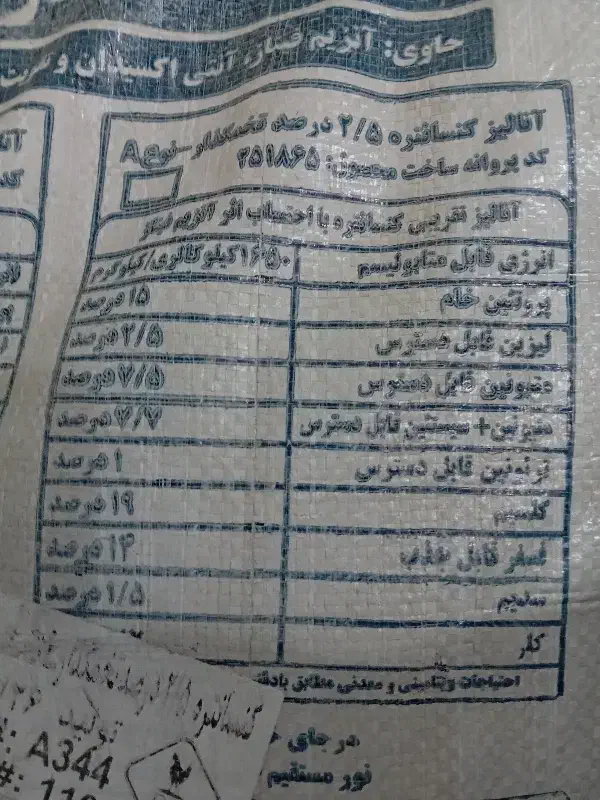 حاوی: آنزیم فیتاز، آنتی اکسیدان و
آنالیز کنسانتره ۲/۵ درصد تخمگذار-نوع A
کد پروانه ساخت محصول: ۲۵۱۸۶۵
آنالیز تقریبی کنسانتره با احتساب اثر آنزیم فیتاز
انرژی قابل متابولیسم ۱۶۵۰ کیلوکالری/کیلوگرم
پروتئین خام ۱۵ درصد
لیزین قابل دسترس ۲/۵ درصد
متیونین قابل دسترس ۷/۵ درصد
متیونین+سیستئین قابل دسترس ۷/۷ درصد
ترئونین قابل دسترس ۱ درصد
کلسیم ۱۹ درصد
فسفر قابل جذب ۱۴ درصد
سدیم ۱/۵ درصد
کلر
احتیاجات ویتامینی و معدنی مطابق با
کنسانتره ۲/۵ درصد تخمگذار
تولید
A344
#: 110
در جای
نور مستقیم